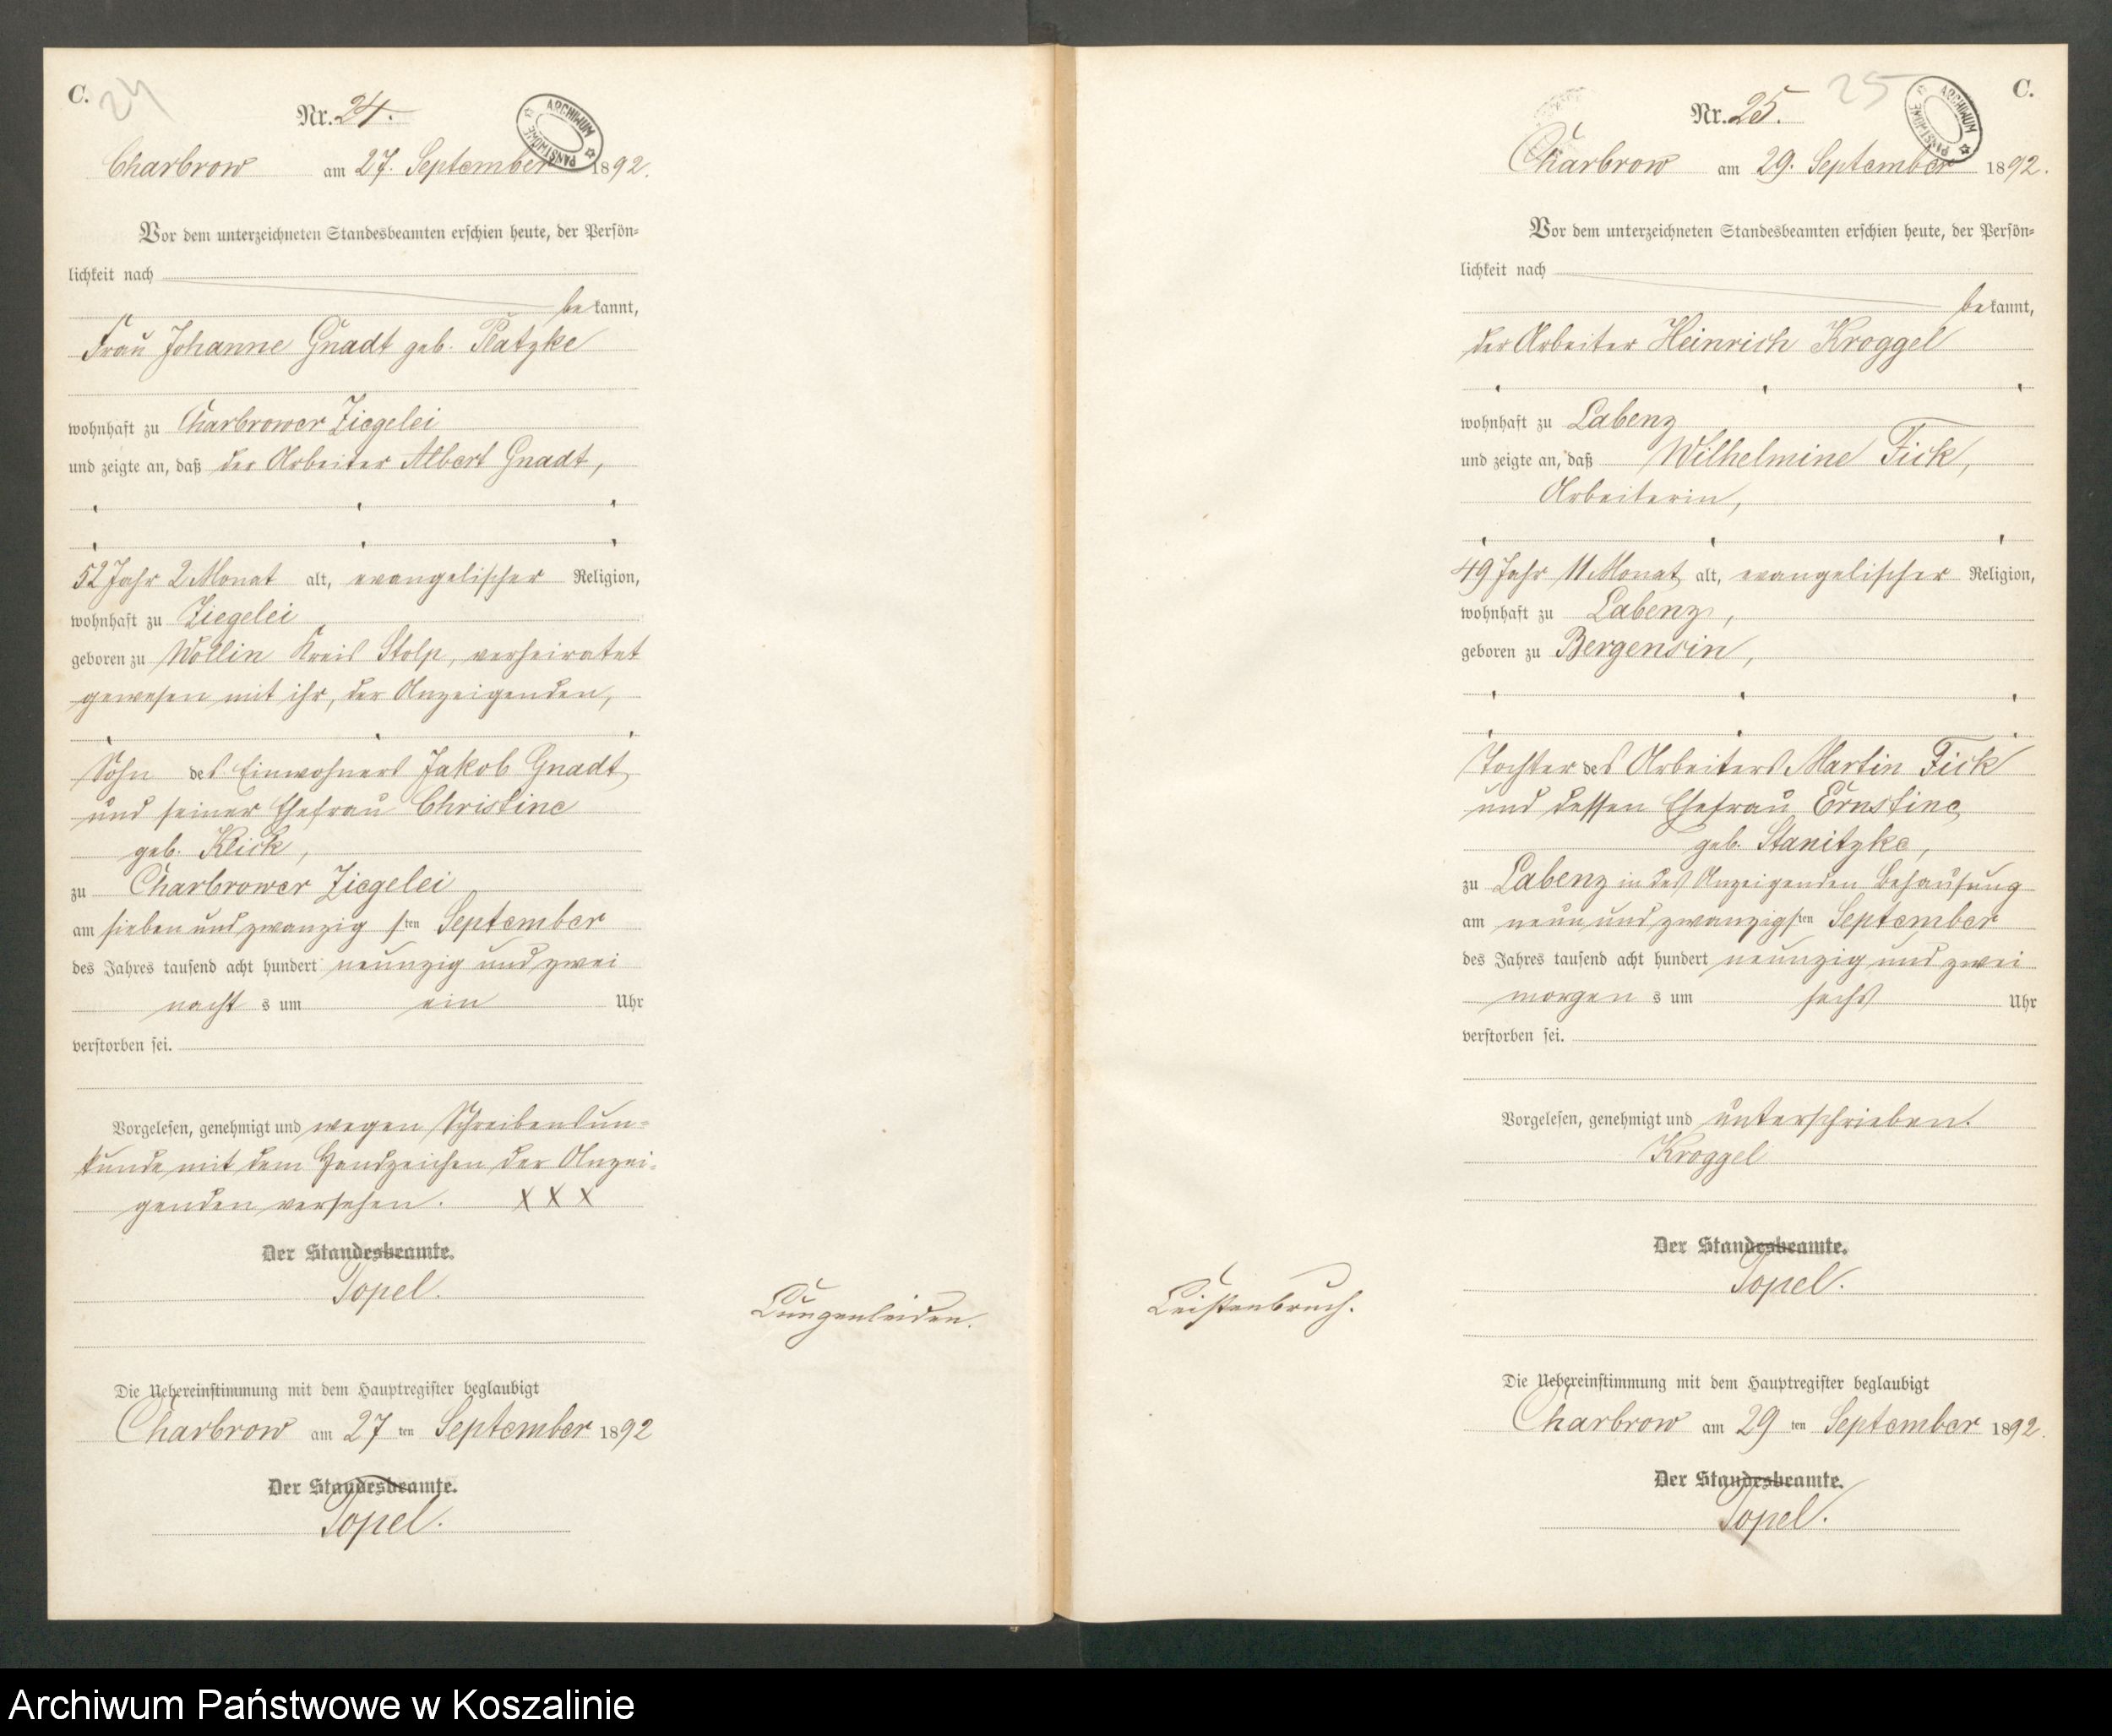 C.
24
Nr. 24.
ARCHIWUM PAŃSTWOWE
Charbrow am 27. September 1892.
Vor dem unterzeichneten Standesbeamten erschien heute, der Persön-
lichkeit nach
bekannt,
Frau Johanne Gnadt geb. Platzke
wohnhaft zu Charbrower Ziegelei
und zeigte an, daß der Arbeiter Albert Gnadt,
52 Jahr 2 Monat alt, evangelischer Religion,
wohnhaft zu Ziegelei
geboren zu Wollin Kreis Stolp, verheiratet
gewesen mit ihr, der Anzeigenden,
Sohn des Einwohners Jakob Gnadt
und seiner Ehefrau Christine
geb. Klick,
zu Charbrower Ziegelei
am sieben und zwanzigsten September
des Jahres tausend acht hundert neunzig und zwei
nachts um ein Uhr
verstorben sei.
Vorgelesen, genehmigt und wegen Schreibensun-
kunde mit dem Handzeichen der Anzei-
genden versehen. XXX
Der Standesbeamte.
Topel.
Lungenleiden.
Die Uebereinstimmung mit dem Hauptregister beglaubigt
Charbrow am 27 ten September 1892
Der Standesbeamte.
Topel.
25
C.
Nr. 25.
ARCHIWUM PAŃSTWOWE
Charbrow am 29. September 1892.
Vor dem unterzeichneten Standesbeamten erschien heute, der Persön-
lichkeit nach
bekannt,
der Arbeiter Heinrich Kroggel
wohnhaft zu Labenz
und zeigte an, daß Wilhelmine Fick,
Arbeiterin,
49 Jahr 11 Monat alt, evangelischer Religion,
wohnhaft zu Labenz,
geboren zu Bergensin,
Tochter des Arbeiters Martin Fick
und dessen Ehefrau Ernstine
geb. Stanitzke,
zu Labenz in des Anzeigenden Behausung
am neun und zwanzigsten September
des Jahres tausend acht hundert neunzig und zwei
morgens um sechs Uhr
verstorben sei.
Vorgelesen, genehmigt und unterschrieben.
Kroggel
Der Standesbeamte.
Topel.
Leistenbruch.
Die Uebereinstimmung mit dem Hauptregister beglaubigt
Charbrow am 29 ten September 1892.
Der Standesbeamte.
Topel.
Archiwum Państwowe w Koszalinie